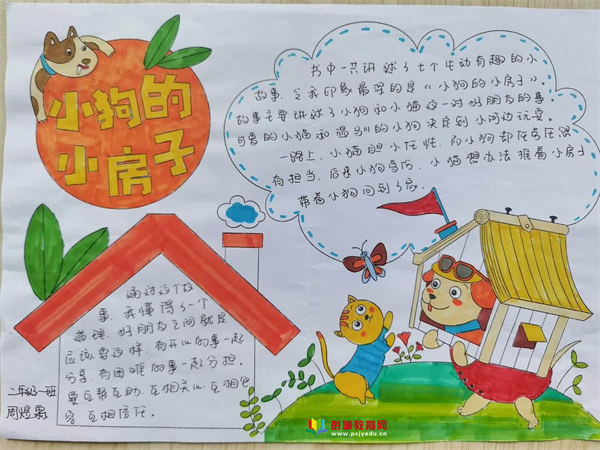 小狗的
小房子
书中一共讲述了七个生动有趣的小
故事,令我印象最深的是《小狗的小房子》.
故事主要讲述了小狗和小猫这一对好朋友的事.
可爱的小猫和温训的小狗决定到小河边玩耍.
一路上,小猫胆小任性,而小狗却
有担当.后来小狗
小猫想办法推着小房子
带着小狗回到了家.
通过这个故
事,我懂得了一个
道理.好朋友之间就是
应该要这样,有开心的事一起
分享,有困难的事一起分担.
要互帮互助、互相关心、互相包
容、互相信任.
二年级一班
周煜霖
彭城教育网
www.pcjyedu.cn